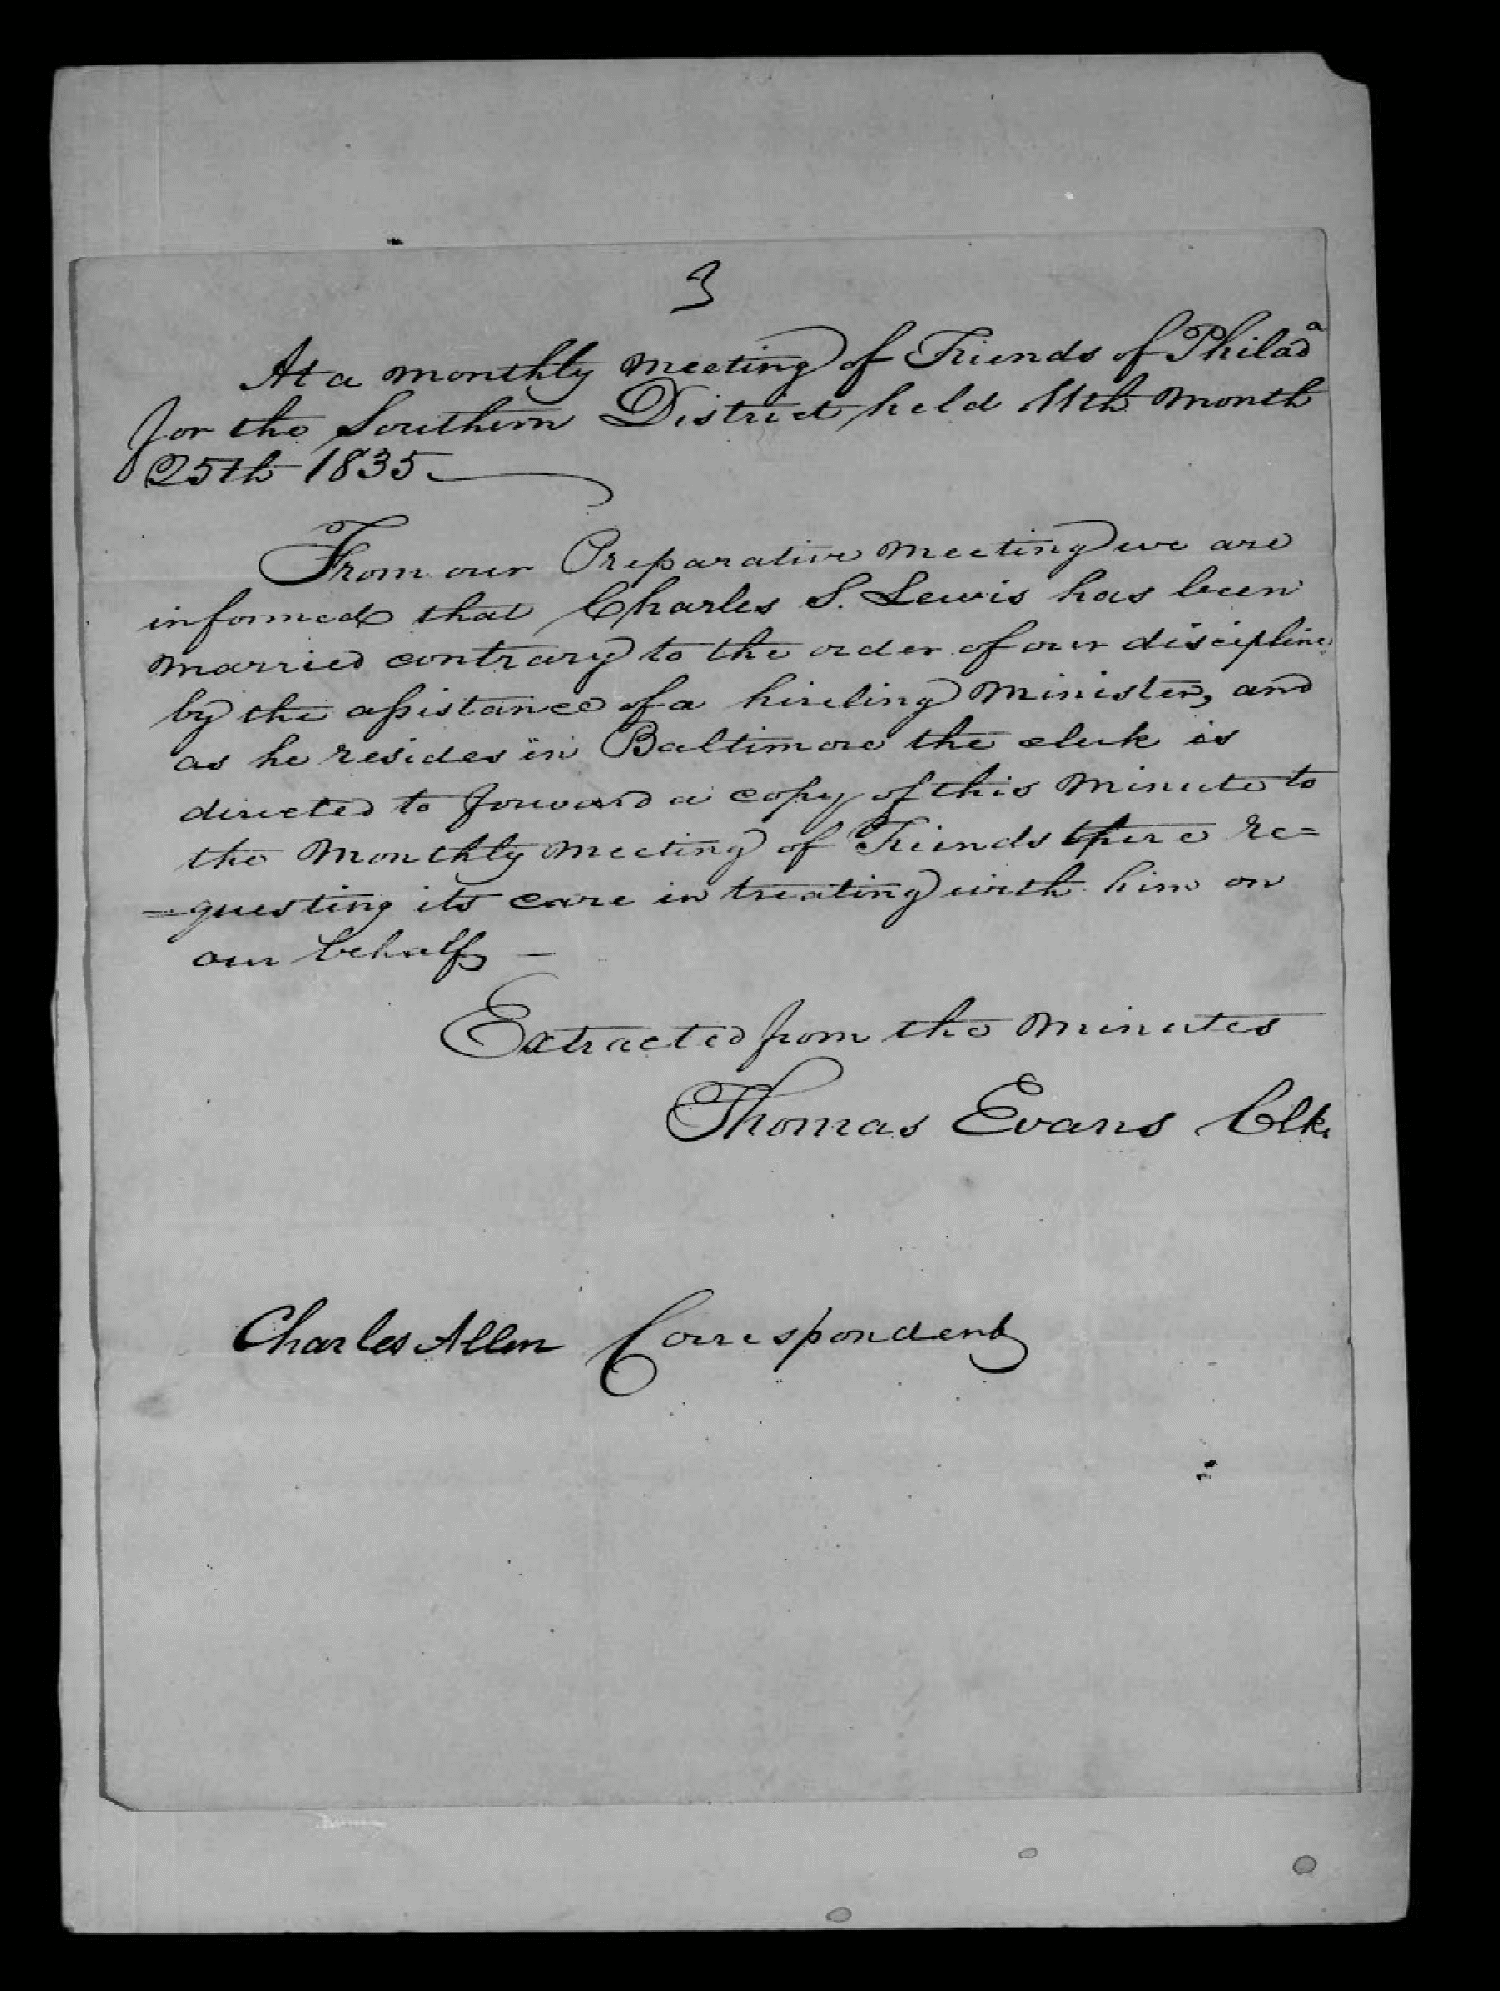 3
At a monthly meeting of Friends of Philadª
for the Southern District held 11th month
25th 1835
From our Preparative meeting we are
informed that Charles S. Lewis has been
married contrary to the order of our discipline
by the assistance of a hireling Minister, and
as he resides in Baltimore the clerk is
directed to forward a copy of this Minute to
the Monthly Meeting of Friends there re=
=questing its care in treating with him on
our behalf —
Extracted from the Minutes
Thomas Evans Clk.
Charles Allen Correspondent